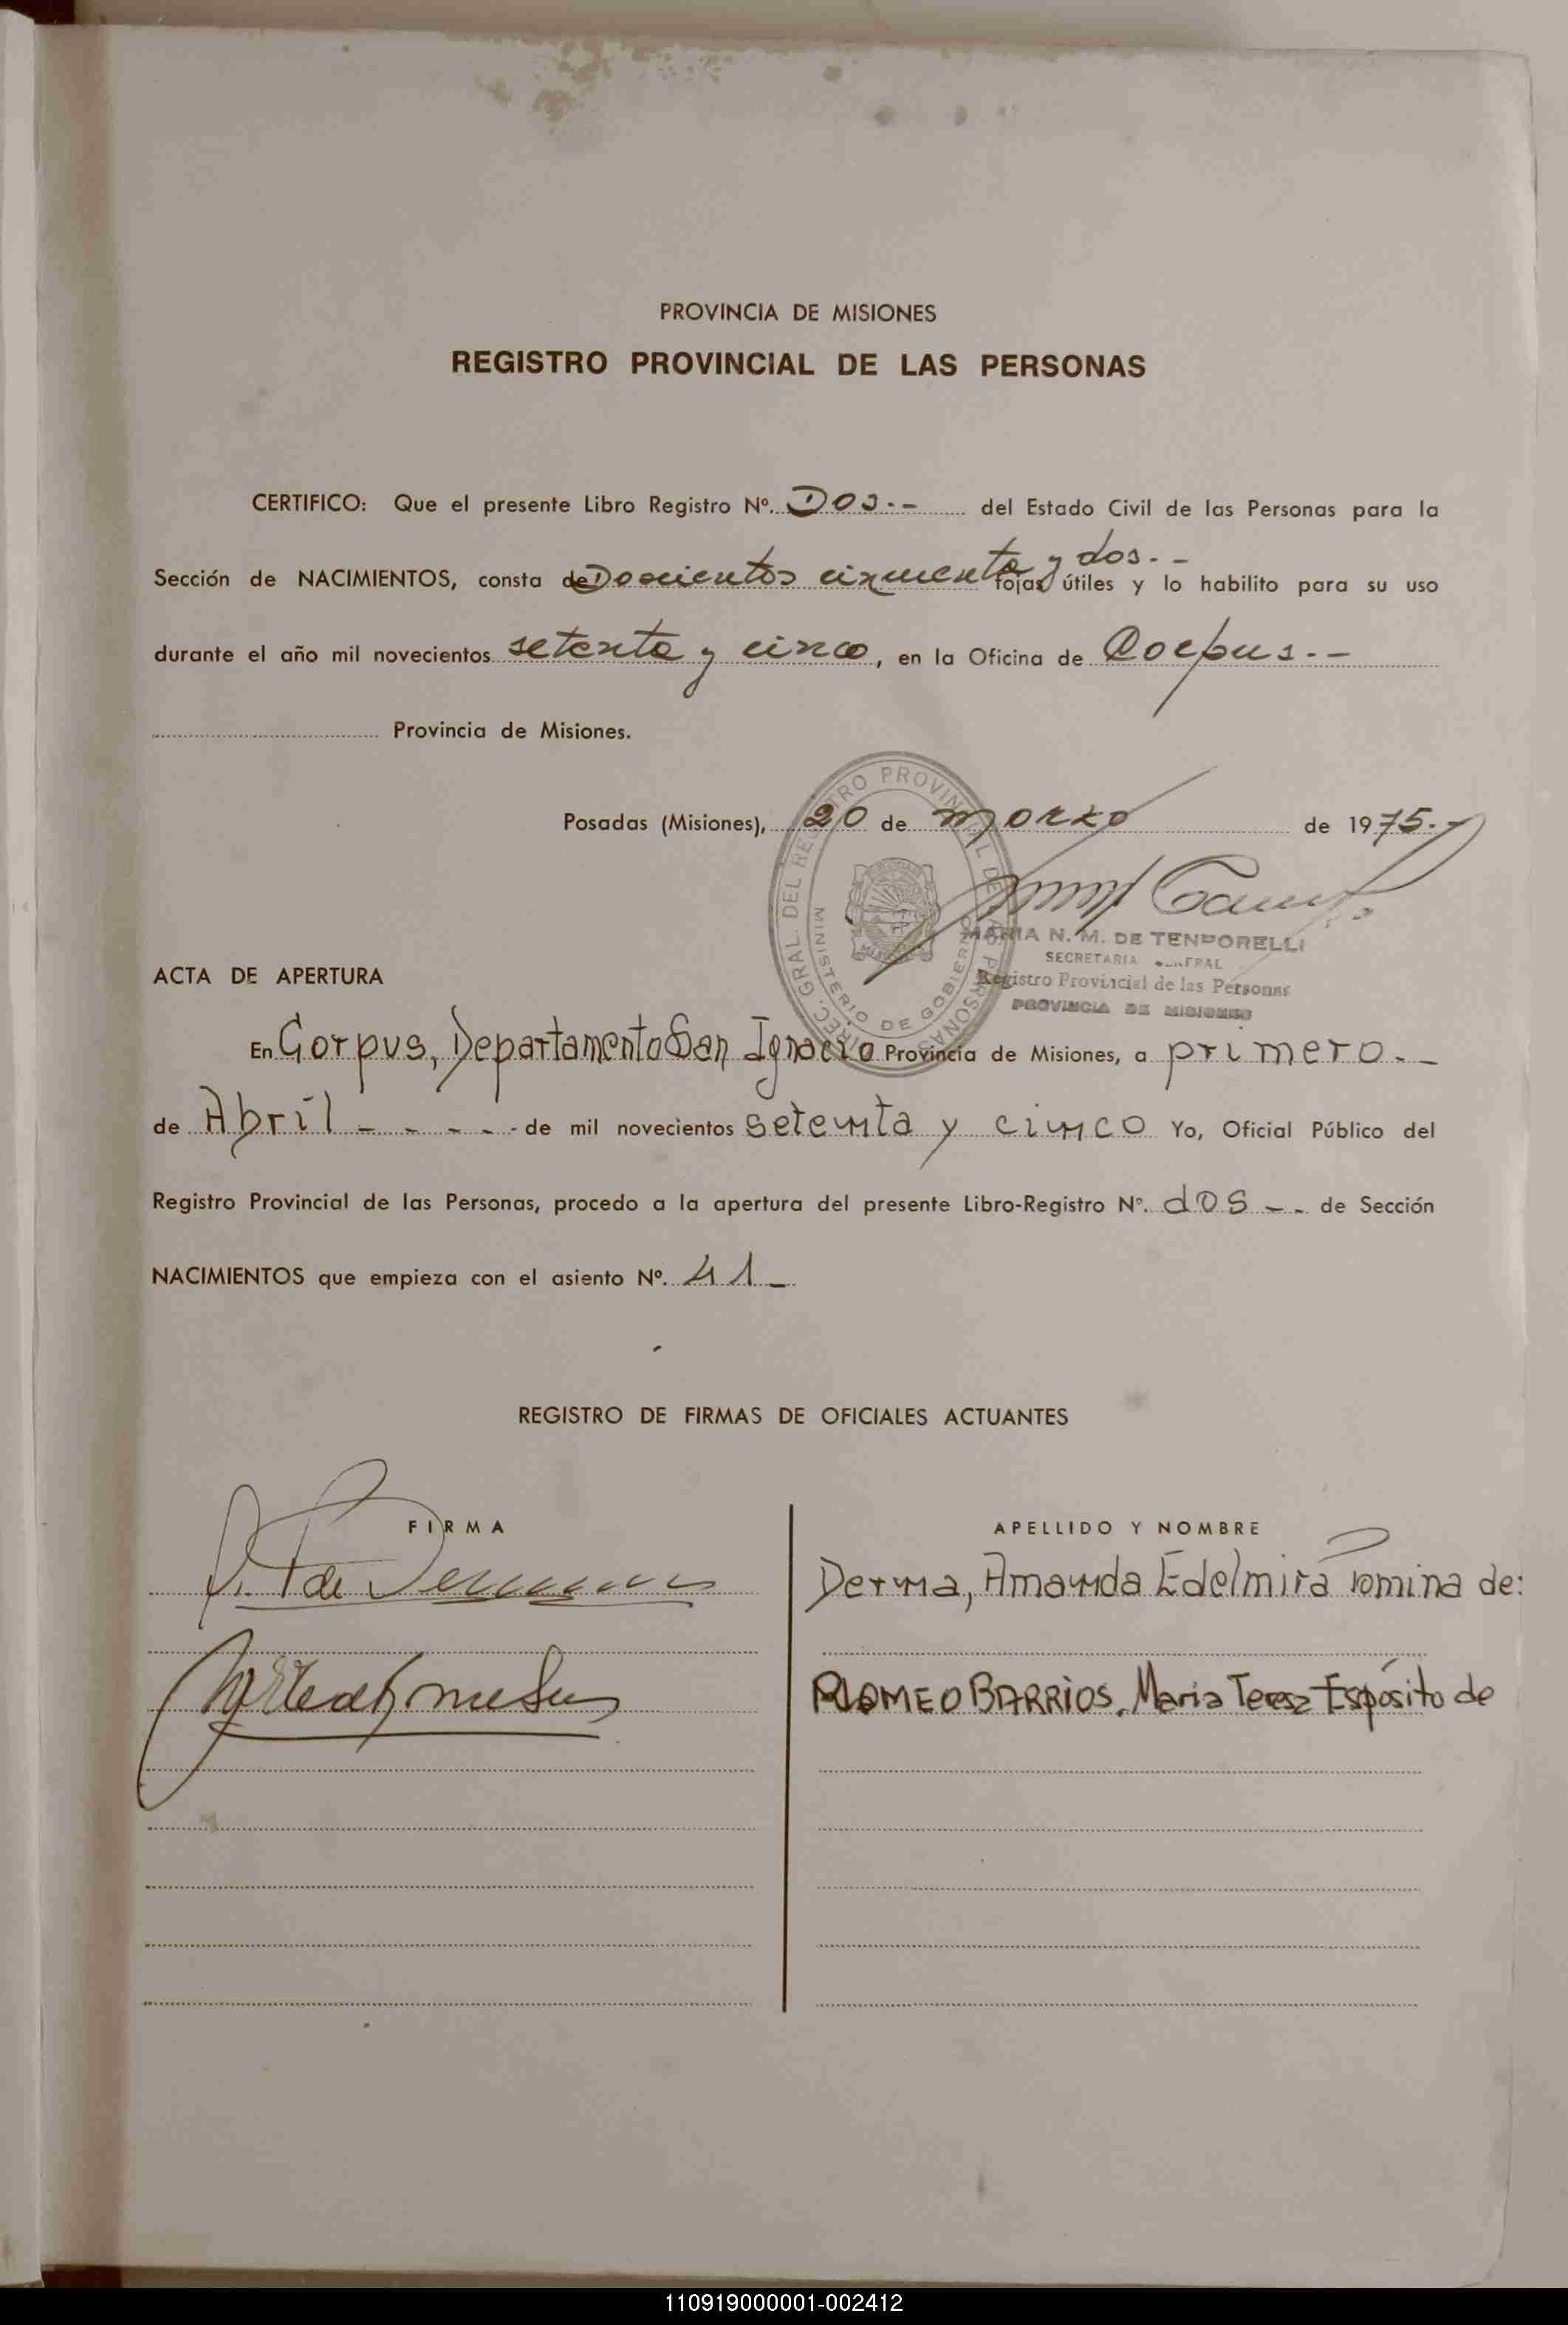 PROVINCIA DE MISIONES
REGISTRO PROVINCIAL DE LAS PERSONAS
CERTIFICO: Que el presente Libro Registro Nº. Dos.-- del Estado Civil de las Personas para la
Sección de NACIMIENTOS, consta de Doscientos cincuenta y dos.-- fojas útiles y lo habilito para su uso
durante el año mil novecientos setenta y cinco, en la Oficina de Corpus.--
Provincia de Misiones.
Posadas (Misiones), 20 de marzo de 1975.-
DIREC. GRAL. DEL REGISTRO PROVINCIAL DE LAS PERSONAS
MINISTERIO DE GOBIERNO
MARIA N. M. DE TEMPORELLI
SECRETARIA GENERAL
Registro Provincial de las Personas
PROVINCIA DE MISIONES
ACTA DE APERTURA
En Corpus, Departamento San Ignacio Provincia de Misiones, a primero.--
de Abril - - - - - de mil novecientos setenta y cinco Yo, Oficial Público del
Registro Provincial de las Personas, procedo a la apertura del presente Libro-Registro Nº. dos -- de Sección
NACIMIENTOS que empieza con el asiento Nº. 41-
REGISTRO DE FIRMAS DE OFICIALES ACTUANTES
FIRMA
APELLIDO Y NOMBRE
Derna, Amanda Edelmira Tomina de:
ROMEO BARRIOS, Maria Teresa Espósito de
110919000001-002412